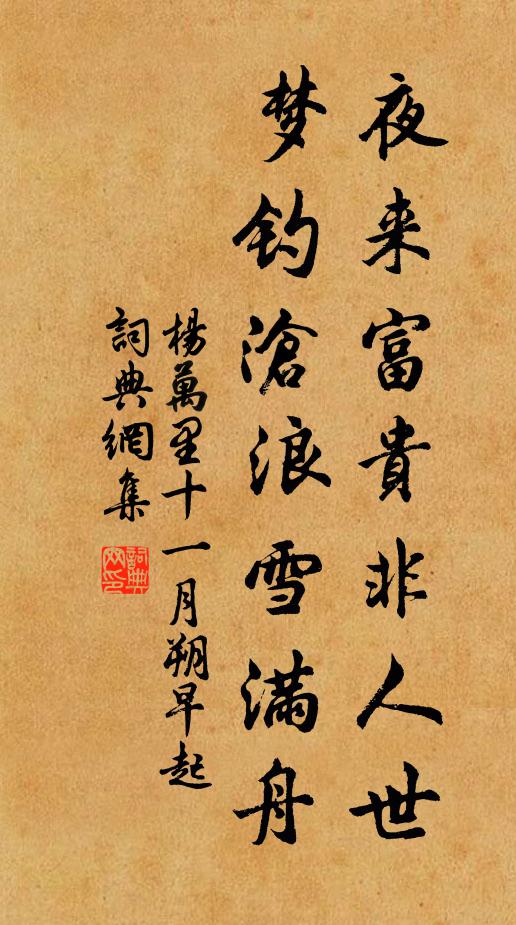 夜来富貴非人世
梦钓滄浪雪满舟
楊萬里十一月朔早起
詞典網集
詞典網印